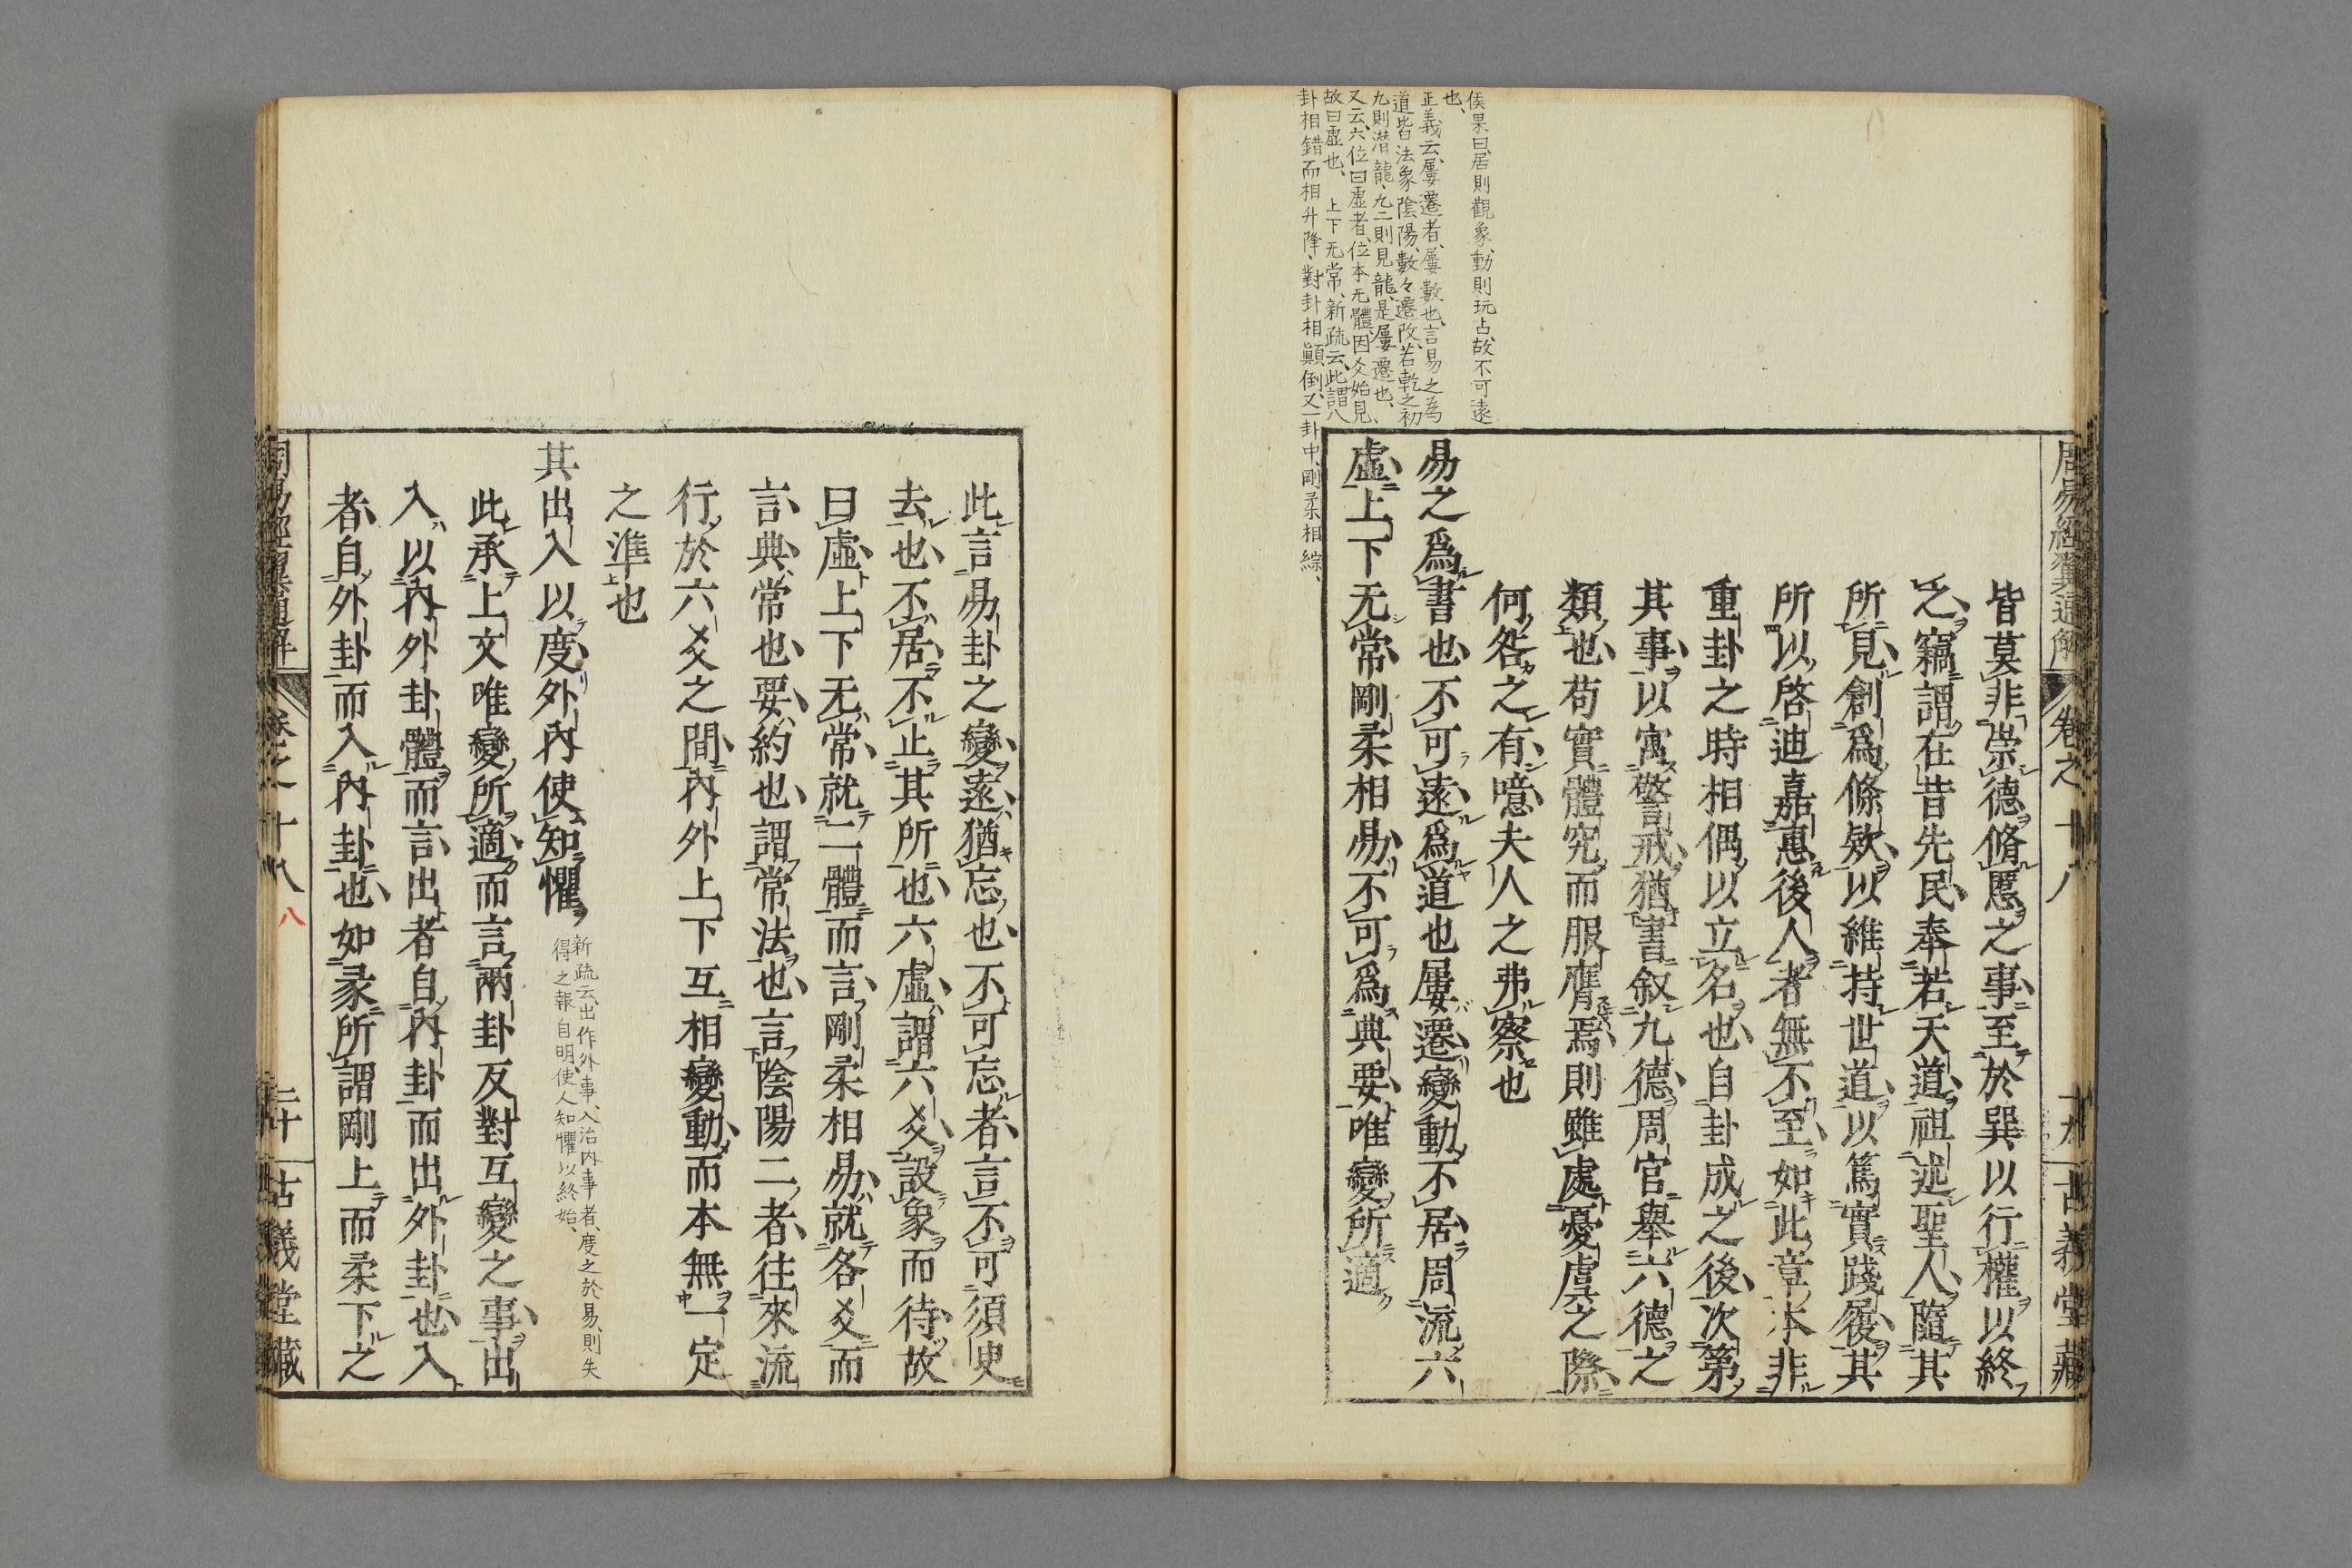 周易經翼通解
卷之十八
十九
古義堂藏
皆莫非崇德脩慝之事至於巽以行權以終
之竊謂在昔先民奉若天道祖述聖人隨其
所見創爲條欸以維持世道以篤實踐履其
所以啓迪嘉惠後人者無不至如此章本非
重卦之時相偶以立名也自卦成之後次第
其事以寓警戒猶書叙九德周官舉六德之
類也苟實體究而服膺焉則雖處憂虞之際
何咎之有噫夫人之弗察也
易之爲書也不可遠爲道也屢遷變動不居周流六
虛上下无常剛柔相易不可爲典要唯變所適
侯果曰、居則觀象、動則玩占、故不可遠
也、
正義云、屢遷者、屢數也、言易之爲
道皆法象陰陽、數々遷改、若乾之初
九則潛龍、九二則見龍、是屢遷也、
又云、六位曰虛者、位本无體、因爻始見
故曰虛也、 上下无常、新疏云、此謂八
卦相錯而相升降、對卦相顚倒、又一卦中、剛柔相綜、
此言易卦之變遠猶忘也不可忘者言不可須臾
去也不居不止其所也六虛謂六爻設象而待故
曰虛上下无常就二體而言剛柔相易就各爻而
言典常也要約也謂常法也言陰陽二者往來流
行於六爻之間內外上下互相變動而本無一定
之準也
其出入以度外內使知懼
新疏云、出作外事、入治内事者、度之於易、則失
得之報自明、使人知懼以終始、
此承上文唯變所適而言兩卦反對互變之事出
入以內外卦體而言出者自內卦而出外卦也入
者自外卦而入內卦也如彖所謂剛上而柔下之
周易經翼通解
卷之十八
八
二十
古義堂藏